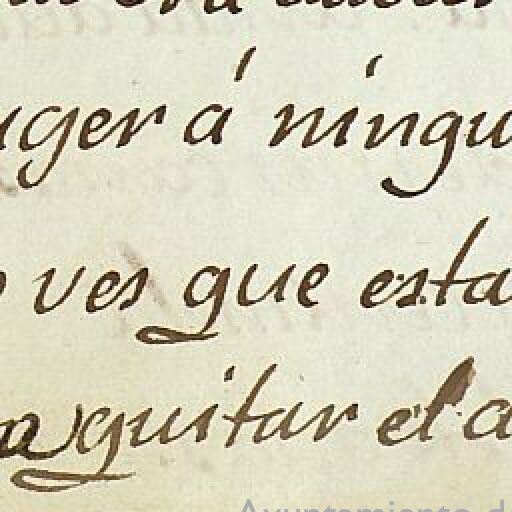 uger á ningu
ves que esta
quitar el a
Ayuntamiento d